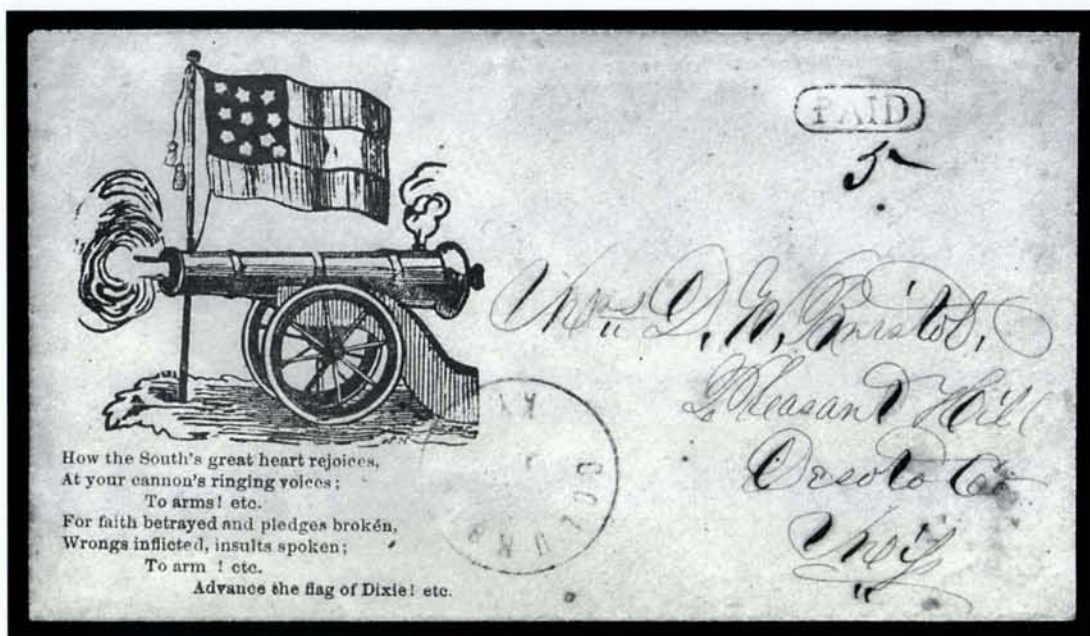 PAID
5
Mrs D. N. Bristol,
Pleasant Hill
Desoto Co
Miss
How the South's great heart rejoices,
At your cannon's ringing voices;
To arms! etc.
For faith betrayed and pledges broken,
Wrongs inflicted, insults spoken;
To arm ! etc.
Advance the flag of Dixie! etc.
KY